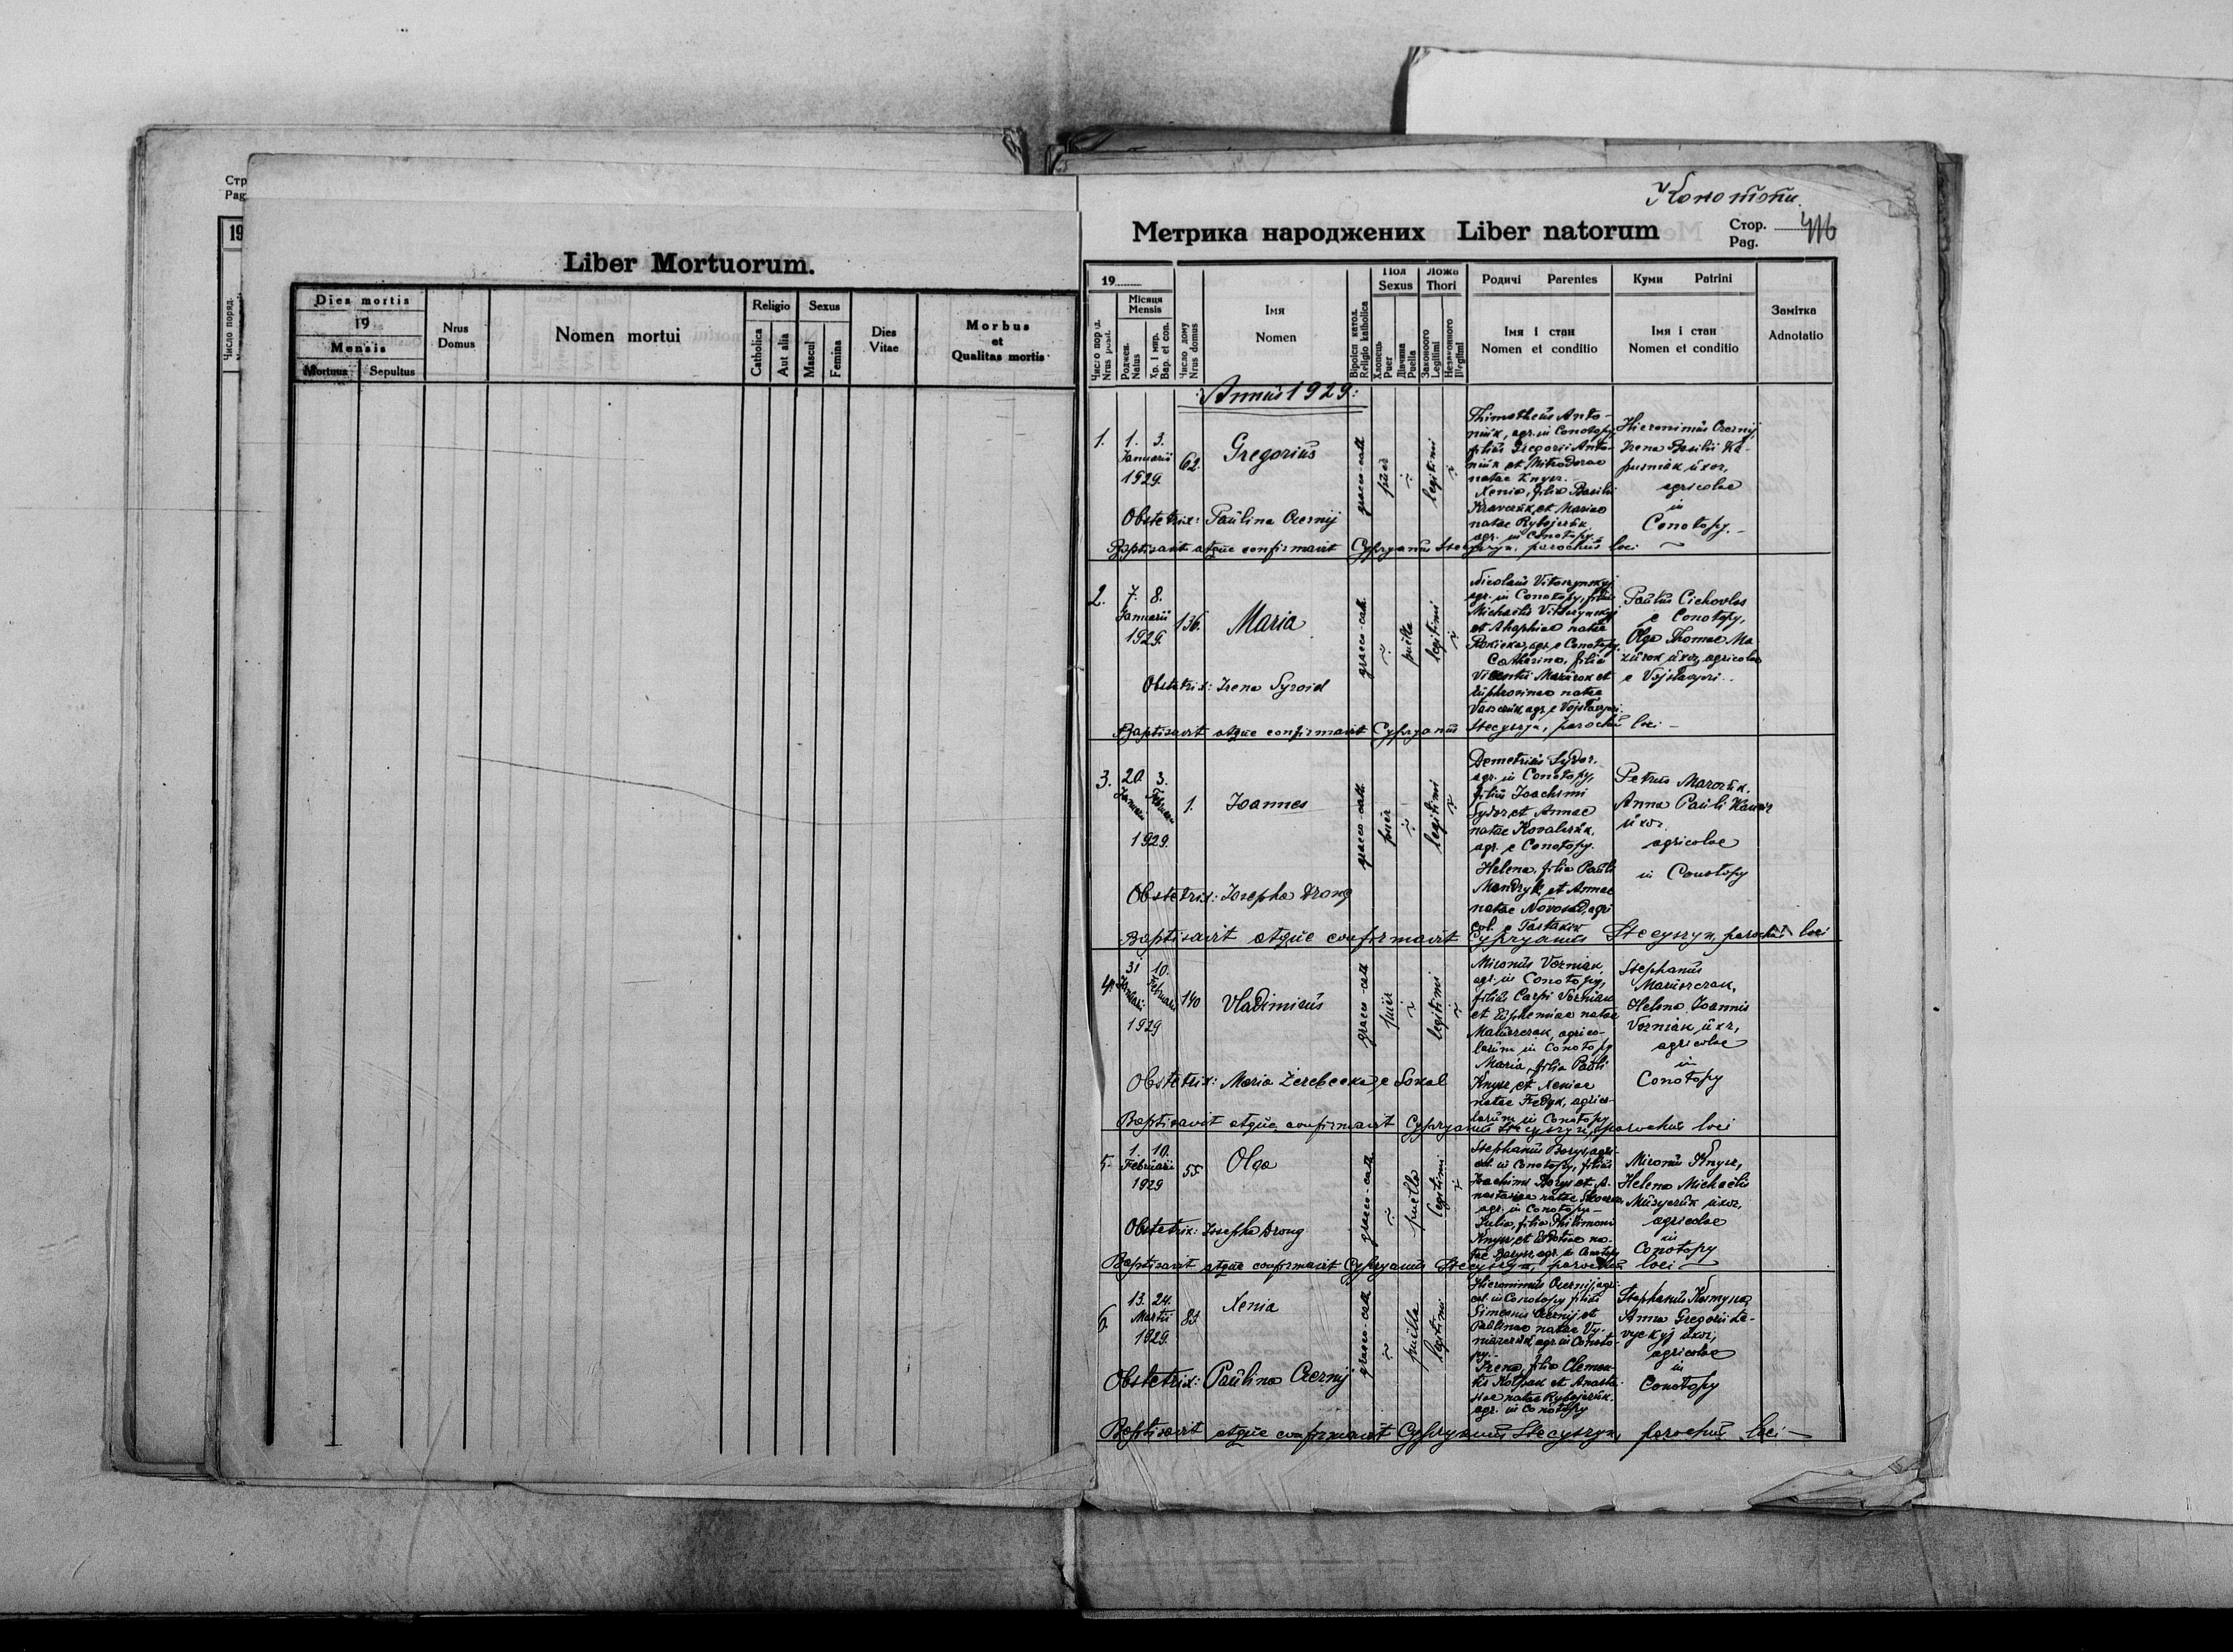 Стр
Pag
19
Число поряд.
Liber Mortuorum.
Dies mortis
19
Mensis
Mortuus
Sepultus
Nrus
Domus
Nomen mortui
Religio
Catholica
Aut alia
Sexus
Mascul
Femina
Dies
Vitae
Morbus
et
Qualitas mortis
Конотопи.
Метрика народжених Liber natorum
Стор.
Pag.
416
19
Місяця
Mensis
Число дому
Nrus domus
Імя
Nomen
Religio catholica
Пол
Sexus
Хлопець
Puer
Дівчина
Puella
Ложа
Thori
Законного
Legitimi
Незаконного
Illegitimi
Родичі Parentes
Імя і стан
Nomen et conditio
Куми Patrini
Імя і стан
Nomen et conditio
Замітка
Adnotatio
Annus 1929:
1.
1. 3.
Januarii
1929.
62.
Gregorius
graeco-cath.
puer
legitimi
Thimotheus Anto-
niuk, agr. in Conotopy,
filius Gregorii Anto-
niuk et Mitrodorae
natae Knysz.
Xenia, filia Basilii
Kravczuk et Mariae
natae Rybojczuk
agr. in Conotopy.
Hieronimus Czernij,
Irena Basilii Ka-
pusniak uxor,
agricolae
in
Conotopy.
Obstetrix: Paulina Czernij
Baptisavit atque confirmavit Cypryanus Stecyszyn, parochus loci
2.
7. 8.
Januarii
1929.
136.
Maria
graeco-cath.
puella
legitimi
Nicolaus Vitoszynskyj
agr. in Conotopy, filius
Michaelis Vitoszynskyj
et Ahaphiae natae
agr. e Conotopy.
Catharina, filia
Vicentii Mazurok et
Euphrosinae natae
agr. e Vojslavyci.
Paulus Cichovlas
e Conotopy,
Olga Thomae Ma-
zurok uxor, agricolae
e Vojslavyci.
Obstetrix: Irena Syroid
Baptisavit atque confirmavit Cypryanus Stecyszyn, parochus loci
3.
20. 3.
Januarii Februarii
1929.
1.
Joannes
graeco-cath.
puer
legitimi
Demetrius Sydor,
agr. in Conotopy,
filius Joachimi
Sydor, et Annae
natae Kovalczuk,
agr. e Conotopy.
Helena, filia Pauli
Mandryk, et Annae
natae Novosad, agri
col. e Tartakiw
Petrus Marczuk,
Anna Pauli
uxor,
agricolae
in Conotopy
Obstetrix: Josepha Drong
Baptisavit atque confirmavit Cypryanus Stecyszyn, parochus loci
4.
31 10.
Januarii Februarii
1929
140
Vladimirus
graeco-cath
puer
legitimi
Mironus Vozniak,
agr. in Conotopy,
filius Carpi Vozniak
et Euphemiae natae
agrico-
larum in Conotopy
Maria, filia Pauli
Knysz, et Xeniae
natae Fedyk, agrico-
larum in Conotopy
Stephanus
Helena Joannis
Vozniak uxor,
agricolae
in
Conotopy
Obstetrix: Maria Żerebecka, e Sokal
Baptisavit atque confirmavit Cypryanus Stecyszyn, parochus loci
5.
1. 10.
Februarii
1929
55.
Olga
graeco-cath.
puella
legitimi
Stephanus Borys, agri-
col. in Conotopy, filius
Joachimi Borys et A-
nastasiae natae
agr. in Conotopy
Julia, filia Philimoni
Knysz, et Evdotiae na-
tae Borysz, agr. in Conotopy
Mironus Knysz,
Helena Michaelis
Musyczuk uxor,
agricolae
in
Conotopy
Obstetrix: Josepha Drong
Baptisavit atque confirmavit Cypryanus Stecyszyn, parochus loci
6.
13. 24.
Martii
1929.
83.
Xenia
graeco-cath
puella
legitimi
Hieronimus Czernij, agri-
col. in Conotopy filius
Simeonis Czernij et
Paulinae natae Vy-
agr. in Conoto-
py.
Irena, filia Clemen-
tis Kolpak et Anasta-
siae natae Rybojczuk.
agr. in Conotopy
Stephanus Kosmyna,
Anna Gregorii Le-
vyckyj uxor,
agricolae
in
Conotopy
Obstetrix: Paulina Czernij
Baptisavit atque confirmavit Cyprynus Stecyszyn, parochus loci